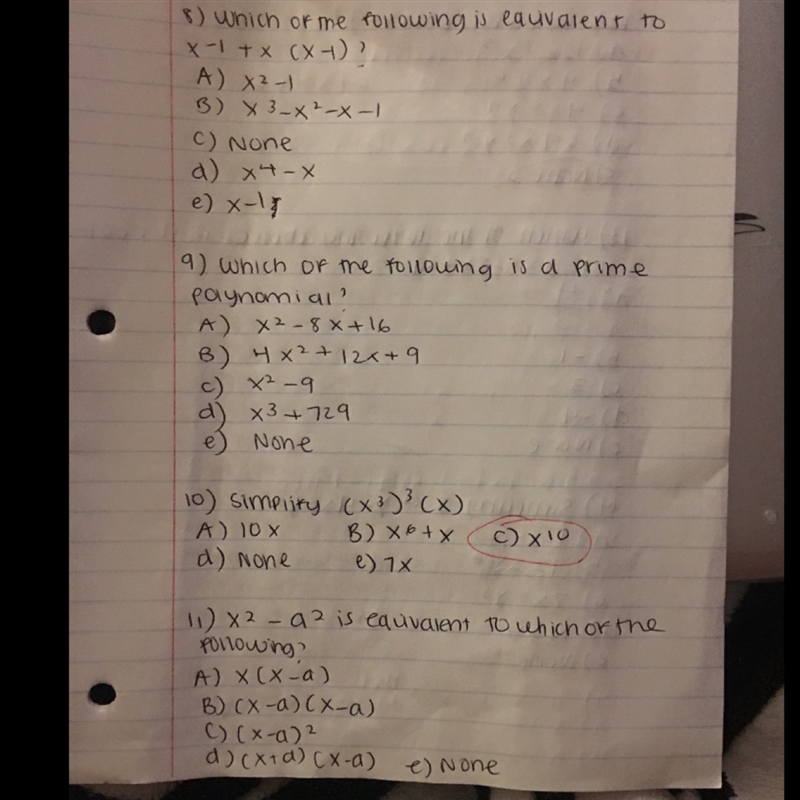 8) Which of the following is equivalent to
x-1 + x (x-1)?
A) x²-1
B) x³-x²-x-1
c) None
d) x4-x
e) x-1
9) Which of the following is a prime
paynomial?
A) x²-8x+16
B) 4x²+12x+9
c) x²-9
d) x3+729
e) None
10) Simplify (x³)³(x)
A) 10x B) x6+x c) x10
d) None e) 7x
11) x²-a² is equivalent to which of the
following?
A) x(x-a)
B) (x-a)(x-a)
c) (x-a)²
d) (x+a)(x-a) e) None